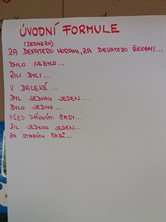 ÚVODNÍ FORMULE
ZA DEVATERO HORAMI, ZA DEVATERO ŘEKAMI...
BYLO NEBYLO...
ŽILI BYLI...
V DALEKÉ...
BYL JEDNOU JEDEN...
BYLO JEDNO...
PŘED DÁVNÝMI ČASY...
ŽIL JEDNOU JEDEN...
ZA STARÝCH ČASŮ...